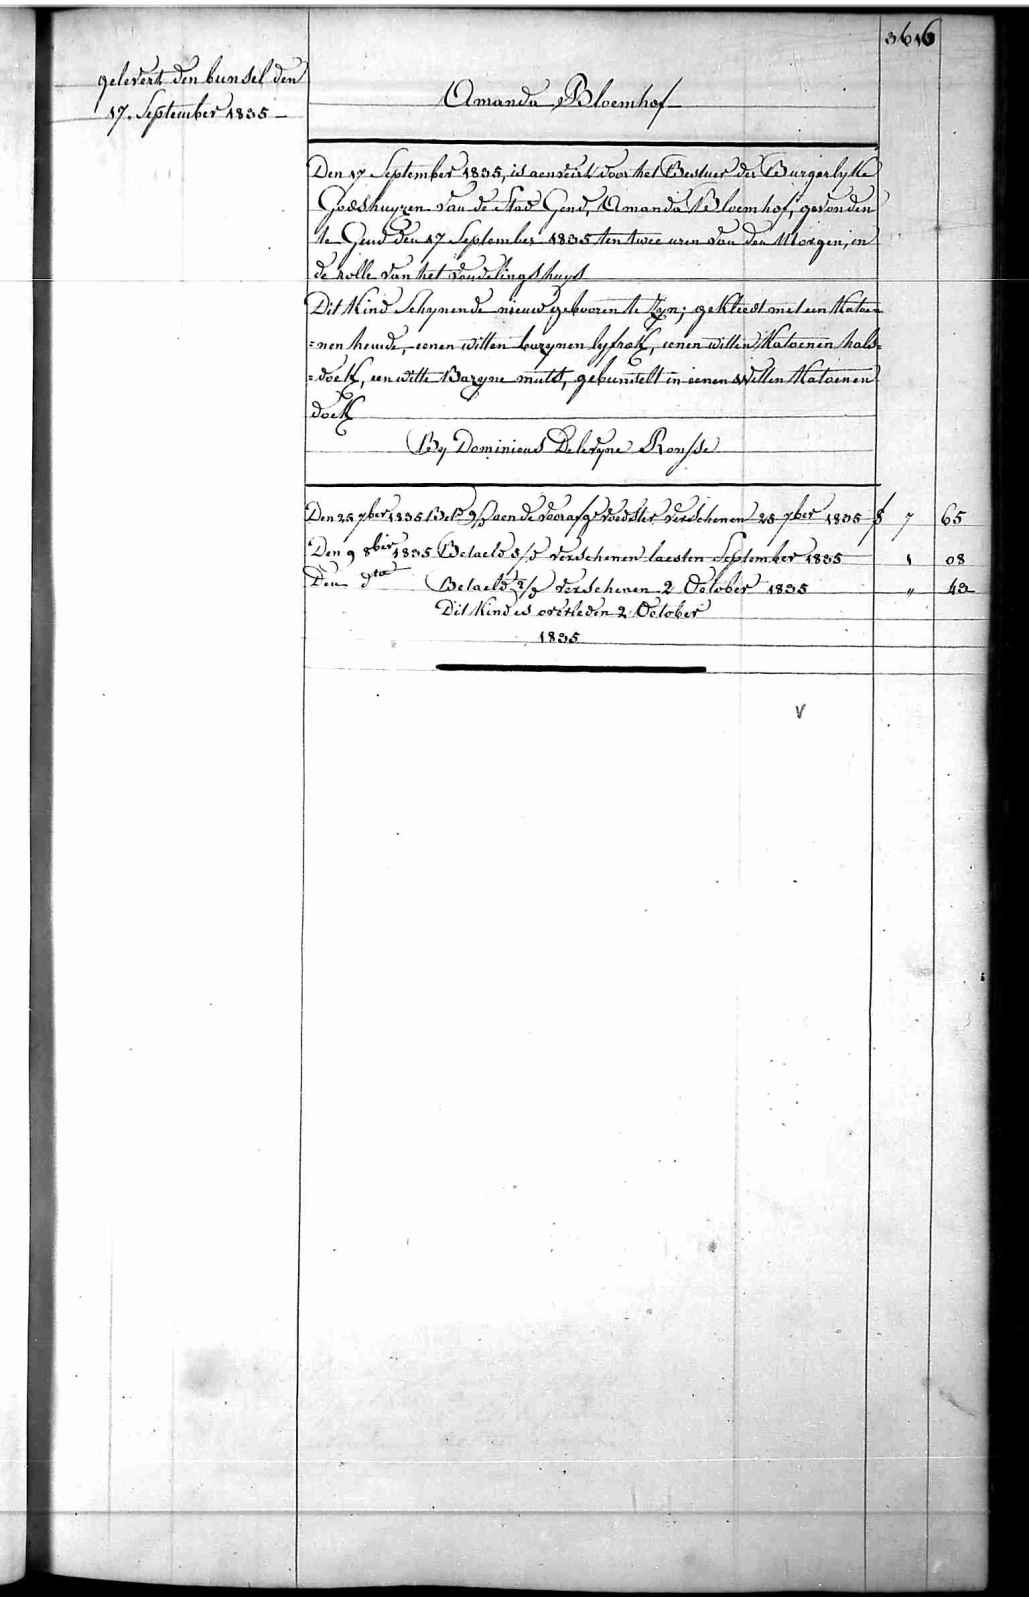 3616
gelevert den bunsel den
17. September 1835 —
Amanda Bloemhof
Den 17 September 1835, is aenveird door het Bestuer der Burgerlyke
Godshuyzen van de Stad Gend, Amanda Bloemhof, gevonden
te Gend den 17 September 1835 ten twee uren van den Morgen, in
de rolle van het vondelingshuys
Dit Kind Schynende nieuw gebooren te zyn; gekleedt met een Katoe-
=nen hemde, eenen witten bazynen lyfrok, eenen witten Katoenen hals=
=doek, een witte Bazyne muts, gebunselt in eenen Witten Katoenen
doek
By Dominicus Delevyne Ronsse
Den 25 7ber 1835 Betd 9/3 aen de voorafge voedster verschenen 25 7ber 1835 f 7 65
Den 9 8ber 1835 Betaeld 5/3 verschenen laesten September 1835 1 08
Den dto Betaeld 2/3 verschenen 2 October 1835 " 43
Dit Kind is overleden 2 October
1835
V